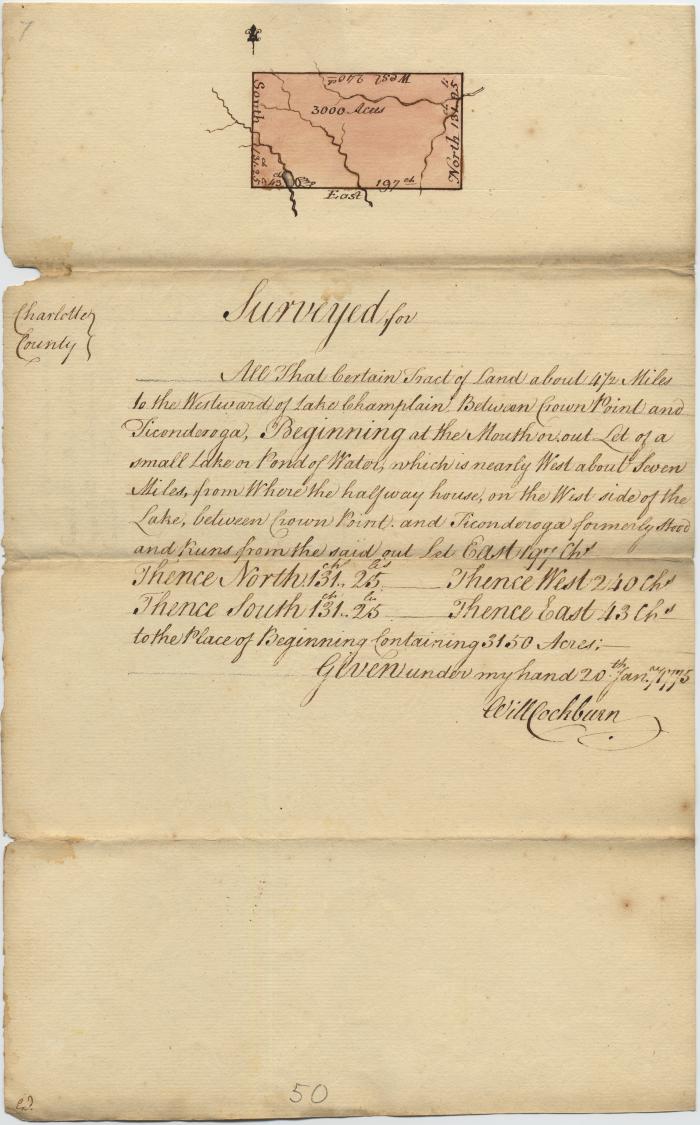 7
West 240 ch
South 131.25
3000 Acres
North 131.25
43 ch
197 ch
East
Charlotte
County
Surveyed for
All That Certain Tract of Land about 4 1/2 Miles
to the Westward of Lake Champlain Between Crown Point and
Ticonderoga, Beginning at the Mouth or out Let of a
small Lake or Pond of Water, which is nearly West about Seven
Miles, from Where the halfway house, on the West side of the
Lake, between Crown Point and Ticonderoga formerly stood
and Runs from the said out Let East 197 Chs
Thence North 131 ch.. 25 lis Thence West 240 Chs
Thence South 131 ch.. 25 lis Thence East 43 Chs
to the Place of Beginning Containing 3150 Acres;
Given under my hand 20th Jan.ry 1775
Will Cockburn
50